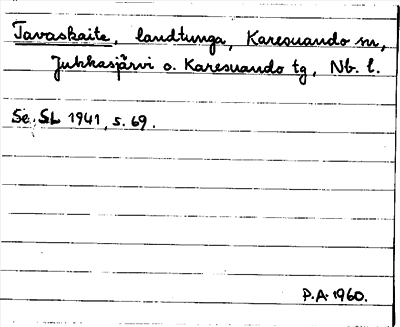 Tavaskaite, landtunga, Karesuando sn,
Jukkasjärvi o. Karesuando tg, Nb. l.
Se SL 1941, s. 69.
P.A. 1960.